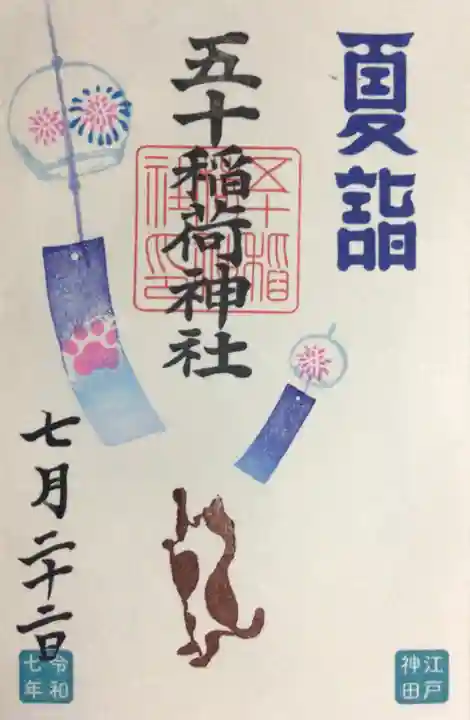 夏詣
五十稲荷神社
七月二十二日
令和七年
江戸神田